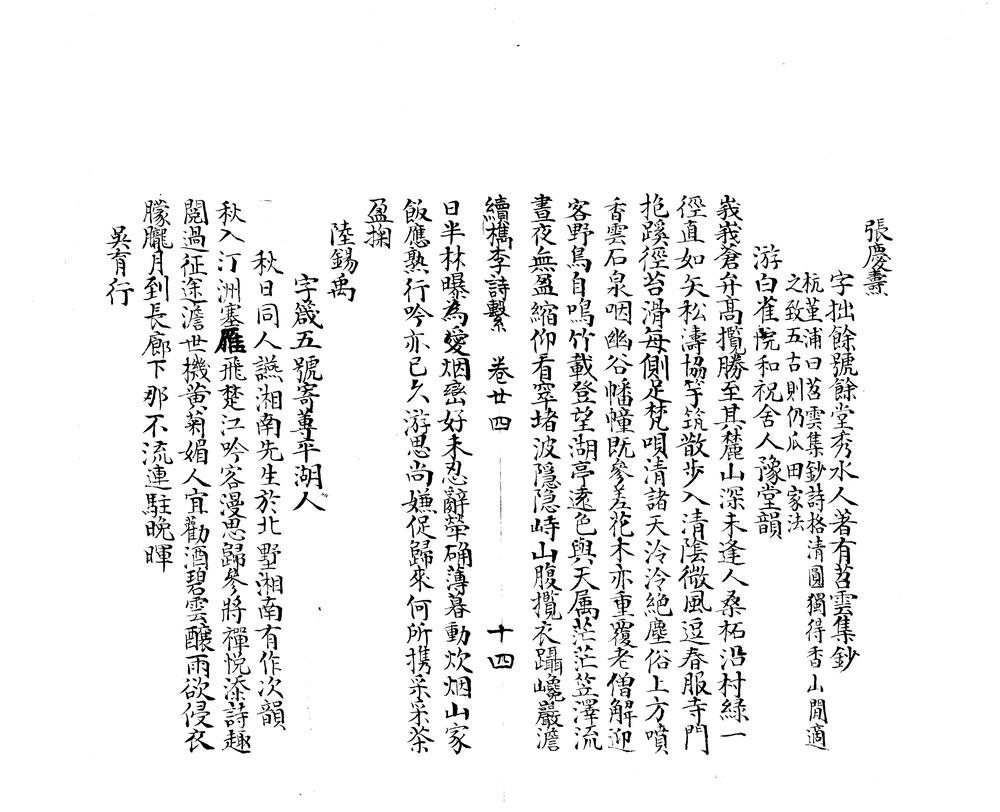 張慶燾
字拙餘號餘堂秀水人著有苕雲集鈔
杭堇浦曰苕雲集鈔詩格清圓獨得香山閒適
之致五古則仍瓜田家法
游白雀院和祝舍人豫堂韻
峩峩蒼弁高攬勝至其麓山深未逢人桑柘沿村綠一
徑直如矢松濤協竽筑散步入清陰微風逗春服寺門
抱蹊徑苔滑每側足梵唄清諸天泠泠絕塵俗上方噴
香雲石泉咽幽谷幡幢既參差花木亦重覆老僧解迎
客野鳥自鳴竹載登望湖亭遠色與天属茫茫笠澤流
晝夜無盈縮仰看窣堵波隱隱峙山腹攬衣躡巉巖澹
續檇李詩繫 卷廿四 十四
日半林曝為愛烟巒好未忍辭犖确薄暮動炊烟山家
飯應熟行吟亦已久游思尚嫌促歸來何所携采采茶
盈掬
陸錫禹
字箴五號寄尊平湖人
秋日同人讌湘南先生於北墅湘南有作次韻
秋入汀洲塞雁飛楚江吟客漫思歸參將禪悦添詩趣
閱過征途澹世機黄菊媚人宜勸酒碧雲釀雨欲侵衣
朦朧月到長廊下那不流連駐晚暉
吳有行